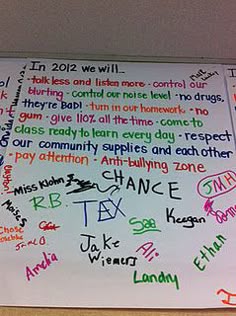 In 2012 we will...
- talk less and listen more - control our
blurting - control our noise level - no drugs,
they're BAD! - turn in our homework - no
gum - give 110% all the time - come to
class ready to learn every day - respect
our community supplies and each other
- pay attention - Anti-bullying zone
CHANCE
Miss Klohn
JMH
R.B.
TAX
Keegan
Sea
Jake
Wiemers
Ali
Ethan
Amelia
Landry